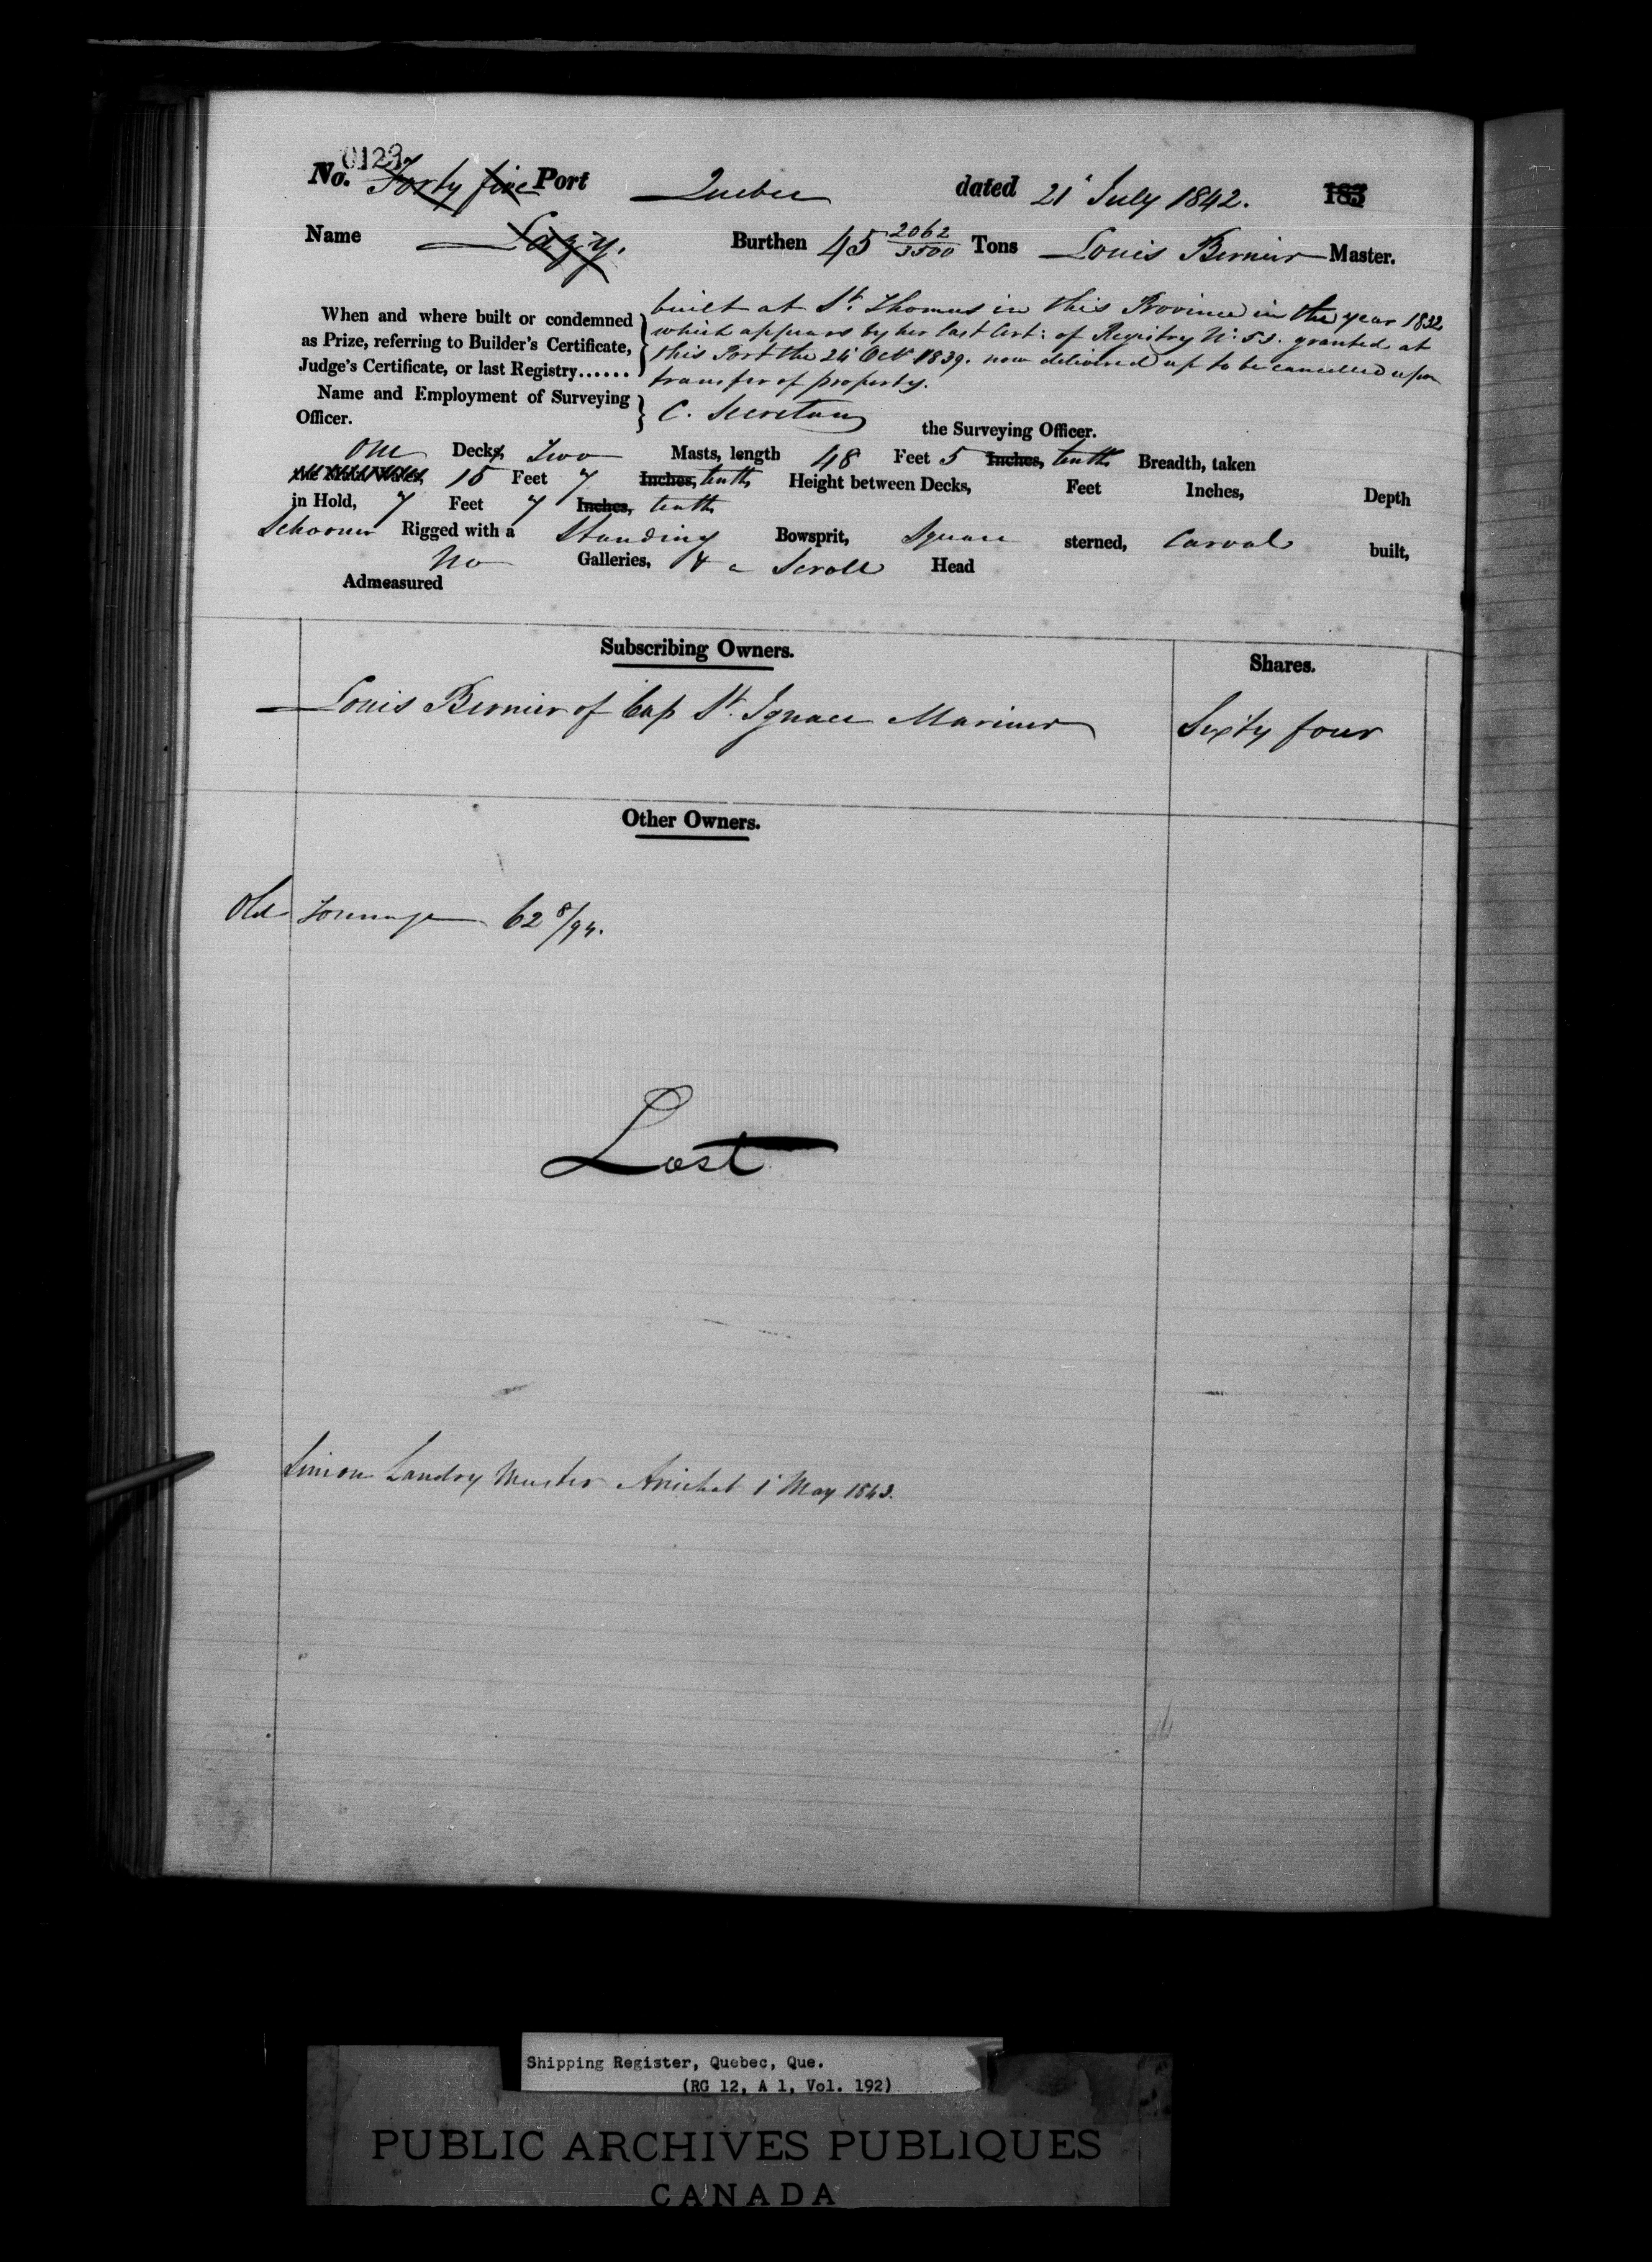 0123
No. Forty five Port Quebec dated 21 July 1842. 183
Name Lazy. Burthen 45 2062/3500 Tons Louis Bernier Master.
When and where built or condemned as Prize, referring to Builder's Certificate, Judge's Certificate, or last Registry......
built at St. Thomas in this Province in the year 1832
which appears by her last Cert: of Registry No. 53. granted at
this Port the 24 Octr 1839. now delivered up to be cancelled upon
transfer of property.
Name and Employment of Surveying Officer. } C. Secretan the Surveying Officer.
One Decks, Two Masts, length 48 Feet 5 Inches, tenths Breadth, taken
15 Feet 7 Inches, tenths Height between Decks, Feet Inches, Depth
in Hold, 7 Feet 7 Inches, tenths
Schooner Rigged with a Standing Bowsprit, Square sterned, Carvel built,
No Galleries, & a Scroll Head
Admeasured
Subscribing Owners.
Shares.
Louis Bernier of Cap St. Ignace Mariner Sixty four
Other Owners.
Old Tonnage 62 8/94.
Lost
Simon Landry Master Arichat 1 May 1843.
Shipping Register, Quebec, Que.
(RG 12, A 1, Vol. 192)
PUBLIC ARCHIVES PUBLIQUES
CANADA